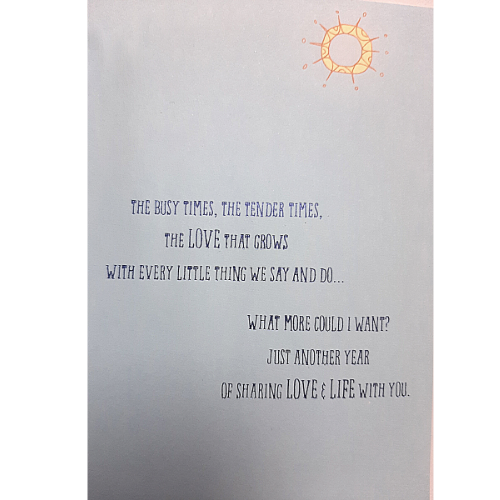 THE BUSY TIMES, THE TENDER TIMES,
THE LOVE THAT GROWS
WITH EVERY LITTLE THING WE SAY AND DO...
WHAT MORE COULD I WANT?
JUST ANOTHER YEAR
OF SHARING LOVE & LIFE WITH YOU.